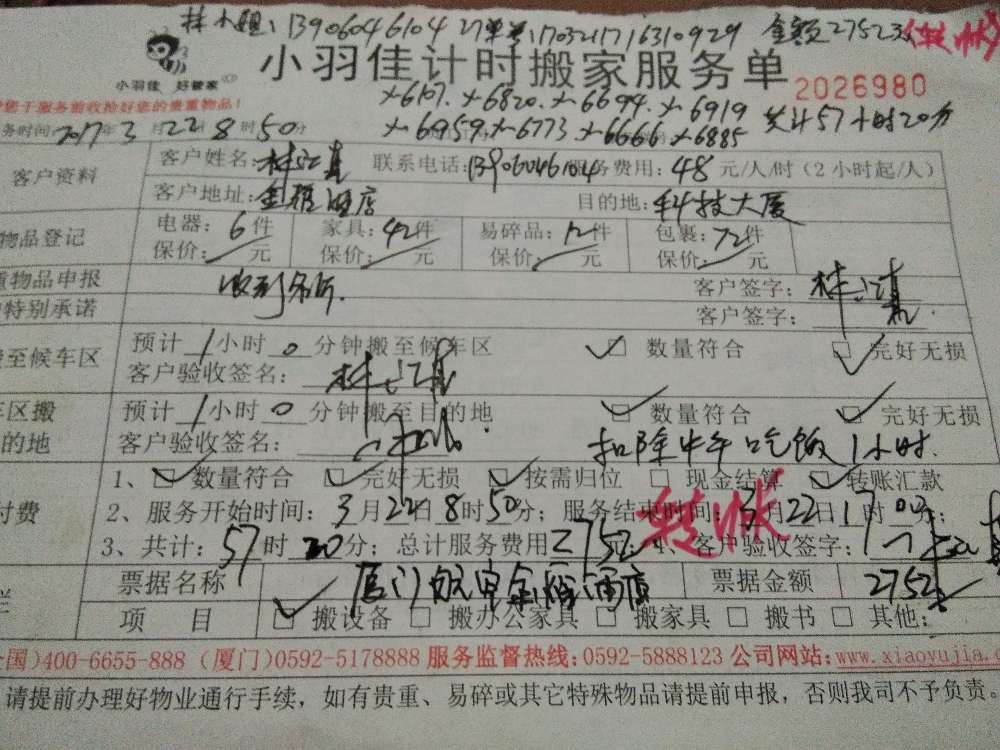 林小姐:13906046104 订单号:1703211716310929 金额2752元 转帐
小羽佳 好管家
小羽佳计时搬家服务单
2026980
您于服务前收拾好您的贵重物品!
×6107. ×6820. ×6694. ×6919
务时间:2017年3月22日8时50分
×6959. ×6773 ×6666 ×6885 共计57小时20分
客户资料
客户姓名: 联系电话:13906046104 服务费用:48元/人/时(2小时起/人)
客户地址: 酒店 目的地:科技大厦
物品登记
电器:6件 家具:42件 易碎品:12件 包裹:72件
保价: 元 保价: 元 保价: 元 保价: 元
重物品申报
客户签字:
特别承诺
收到
客户签字:
搬至候车区
预计1小时0分钟搬至候车区 数量符合 完好无损
客户验收签名:
车区搬
预计1小时0分钟搬至目的地 数量符合 完好无损
的地
客户验收签名: 扣除中午吃饭1小时.
付费
1、数量符合 完好无损 按需归位 现金结算 转账汇款
2、服务开始时间:3月22日8时50分; 服务结束时间:3月22日17时02分;
转帐
3、共计:57时20分; 总计服务费用2752 4、客户验收签字:
票据名称 厦门 酒店 票据金额 2752
项 目 搬设备 搬办公家具 搬家具 搬书 其他:
全国)400-6655-888 (厦门)0592-5178888 服务监督热线:0592-5888123 公司网站:www.xiaoyujia.c
请提前办理好物业通行手续,如有贵重、易碎或其它特殊物品请提前申报,否则我司不予负责。